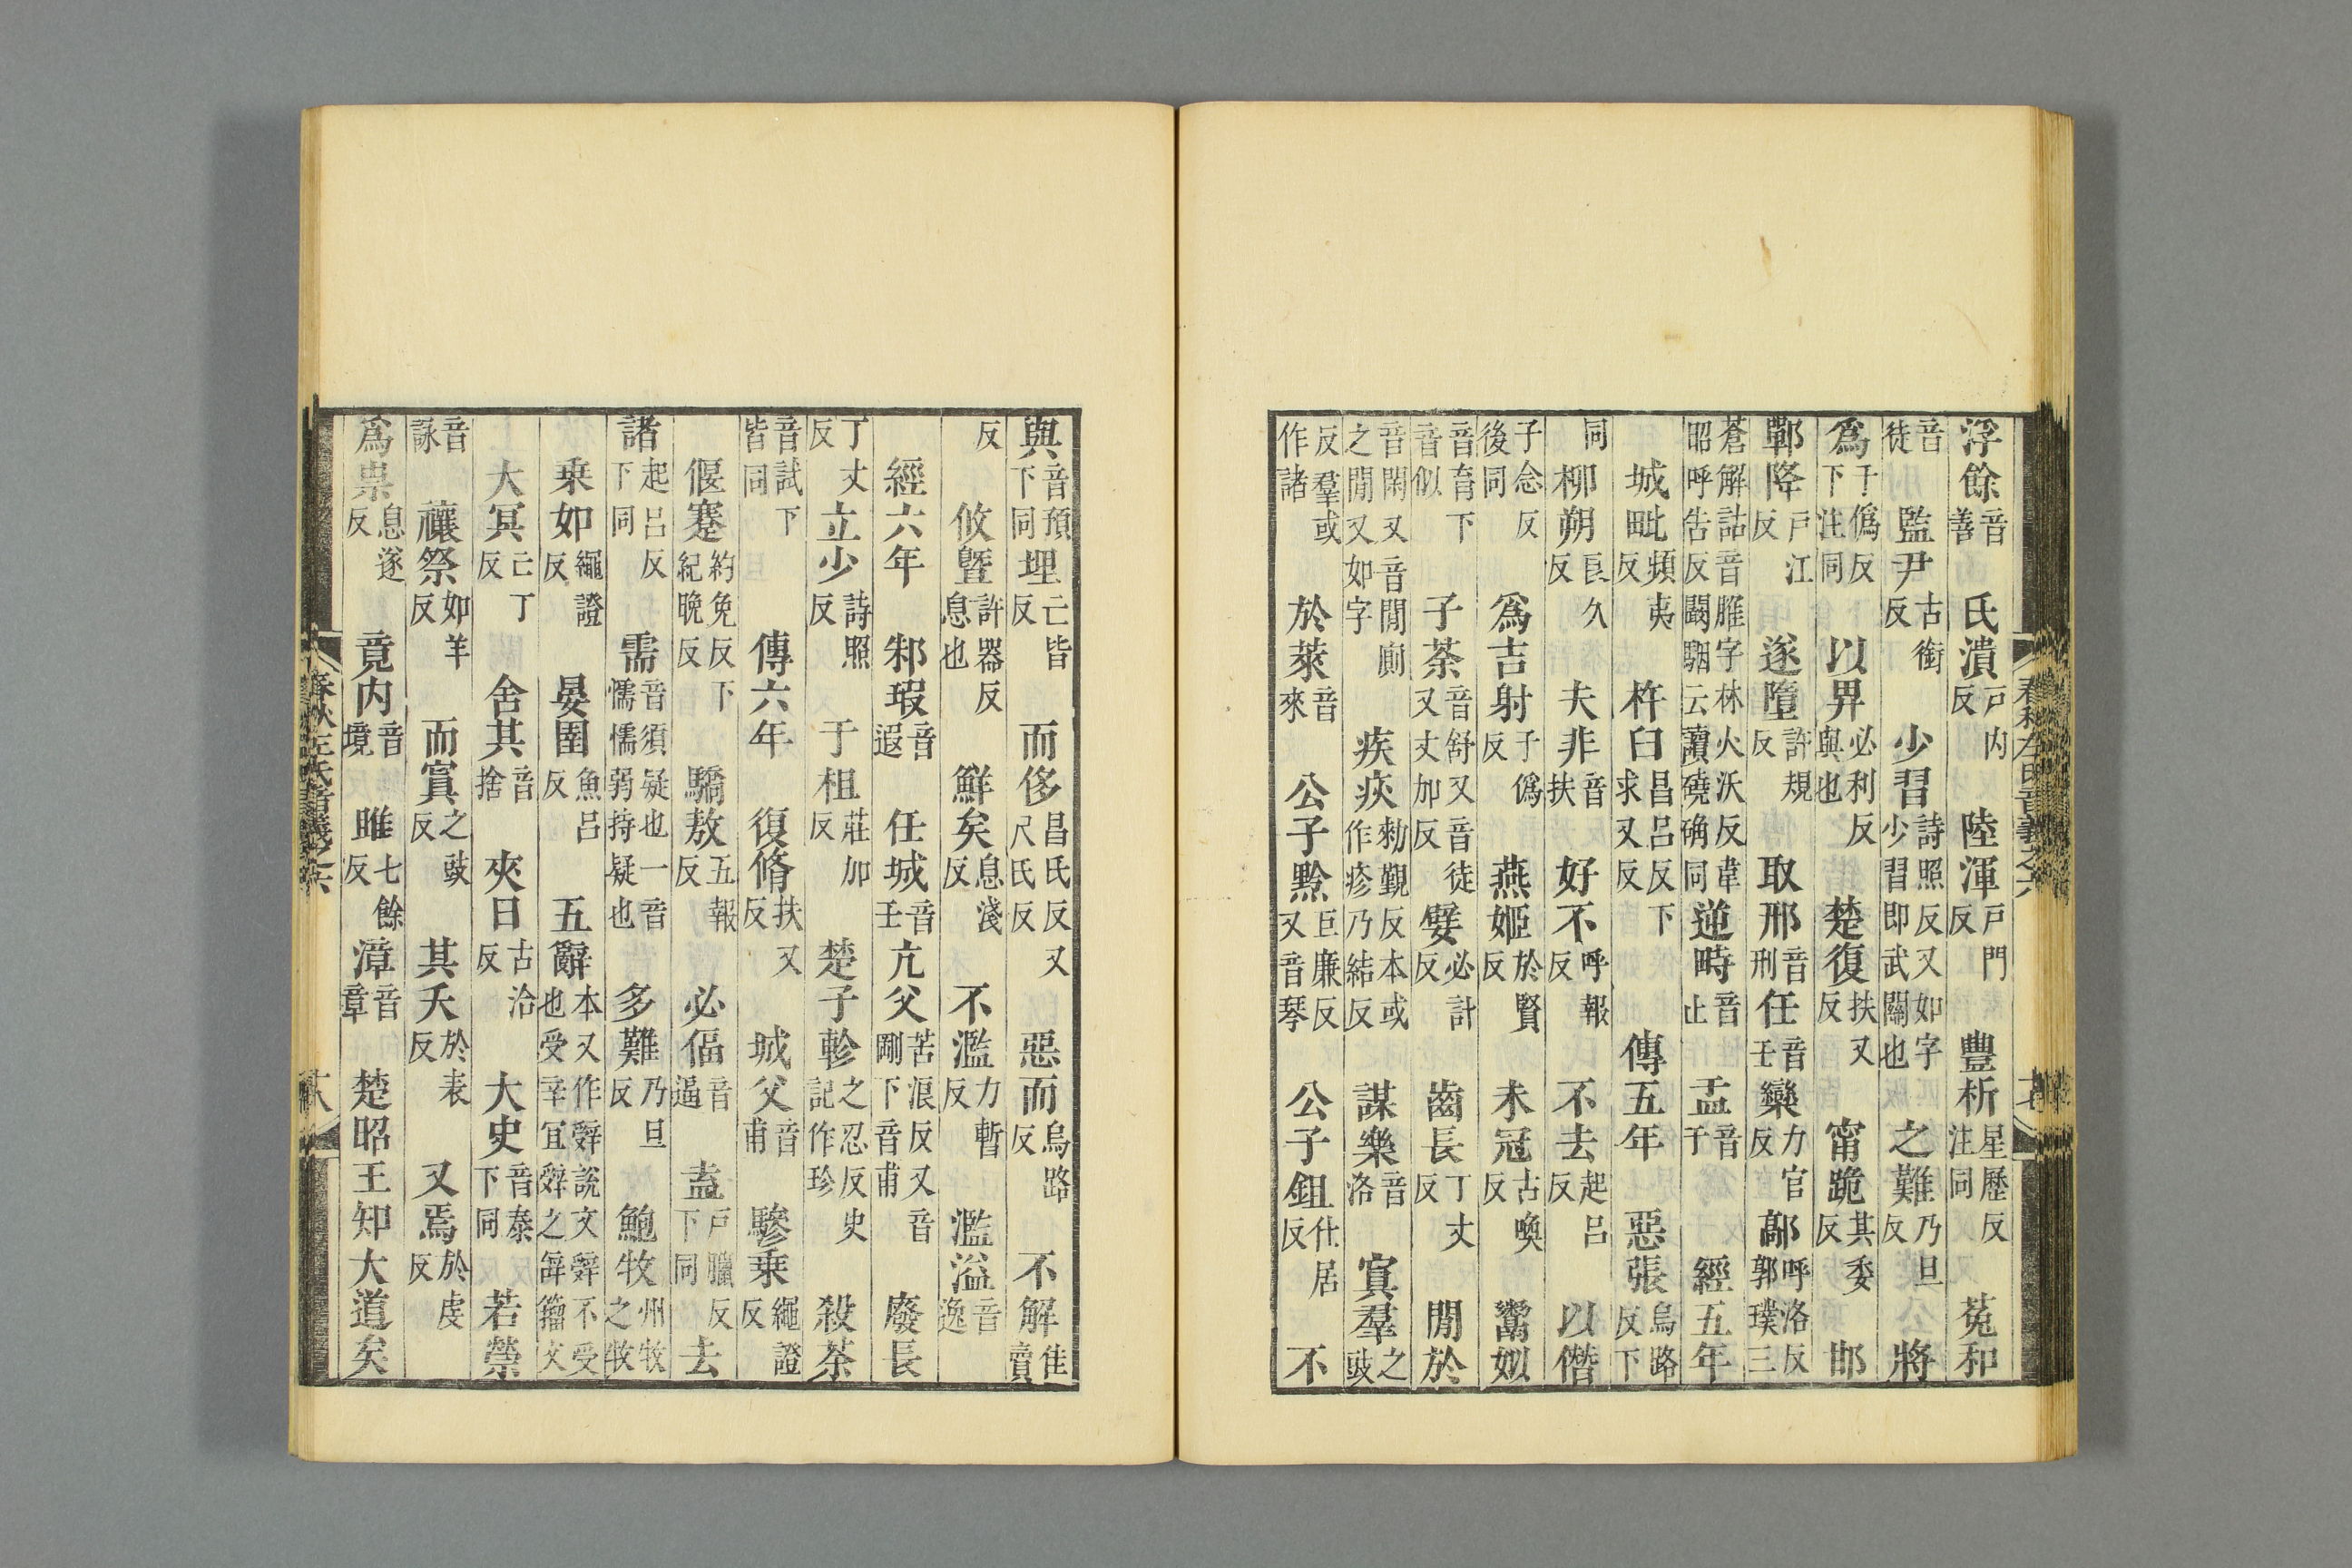 浮餘音善 氏潰戸内反 陸渾戸門反 豊析星歷反注同 菟和
音徒 監尹古銜反 少習詩照反又如字少習即武關也 之難乃旦反 將
爲于僞反下注同 以畀必利反與也 楚復扶又反 甯跪其委反 邯
鄲降戸江反 遂墮許規反 取邢音刑任音壬欒力官反鄗呼洛反郭璞三
蒼解詁音臛字林火沃反韋昭呼告反闞駰云讀磽确同 逆畤音止 盂音于 經五年
城毗頻夷反 杵臼昌呂反下求又反 傳五年 惡張烏路反下
同 柳朔巨久反 夫非音扶 好不呼報反 不去起呂反 以僭
子念反後同 爲吉射子僞反 燕姬於賢反 未冠古喚反 鬻姒
音育下音似 子荼音舒又音徒又丈加反 嬖必計反 齒長丁丈反 閒於
音閑又音閒廁之閒又如字 疾疢勑覲反本或作疹乃結反 謀樂音洛 寘羣之豉
反羣或作諸 於萊音來 公子黔巨廉反又音琴 公子鉏仕居反 不
與音預下同埋亡皆反 而侈昌氏反又尺氏反 惡而烏路反 不解佳賣
反 攸曁許器反息也 鮮矣息淺反 不濫力暫反 濫溢音逸
經六年 邾瑕音遐 任城音壬亢父苦浪反又音剛下音甫 廢長
丁丈反立少詩照反 于柤莊加反 楚子軫之忍反史記作珍 殺荼
音試下皆同 傳六年 復脩扶又反 城父音甫 驂乗繩證反
偃蹇約免反下紀晚反 驕敖五報反 必偪音逼 盍戸臘反下同 去
諸起呂反下同 需音須疑也一音懦懦弱持疑也 多難乃旦反 鮑牧州牧之牧
乗如繩證反 晏圉魚呂反 五辭本又作辤説文辤不受也受辛冝辤之辭籀文
大冥亡丁反 舍其音捨 夾日古洽反 大史音泰下同 若禜
音詠 禳祭如羊反 而寘之豉反 其夭於表反 又焉於虔反
爲祟息遂反 竟内音境 雎七餘反漳音章 楚昭王知大道矣
春秋左氏音義之六 十八